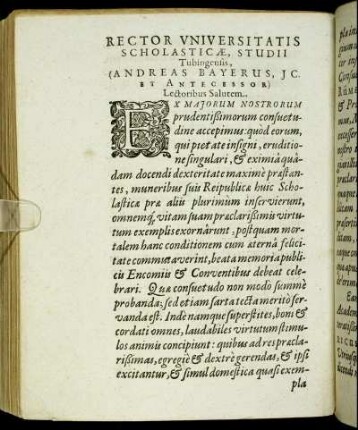 RECTOR VNIVERSITATIS
SCHOLASTICÆ, STUDII
Tubingensis,
(ANDREAS BAYERUS, JC.
ET ANTECESSOR)
Lectoribus Salutem.
EX MAJORUM NOSTRORUM
prudentißimorum consuetu-
dine accepimus: quod eorum,
qui pietate insigni, eruditio-
ne singulari, & eximiâ quâ-
dam docendi dexteritate maximè præstan-
tes, muneribus suis Reipublicæ huic Scho-
lasticæ præ aliis plurimùm inservierunt,
omnemq; vitam suam præclarißimis virtu-
tum exemplis exornârunt: postquam mor-
talem hanc conditionem cum æternâ felici-
tate commutaverint, beata memoria publi-
cis Encomiis & Conventibus debeat cele-
brari. Quæ consuetudo non modo summè
probanda; sed etiam sarta tecta meritò ser-
vanda est. Inde namque superstites, boni &
cordati omnes, laudabiles virtutum stimu-
los animis concipiunt: quibus ad res præcla-
rißimas, egregiè & dextrè gerendas, & ipsi
excitantur, & simul domestica quasi exem-
pla